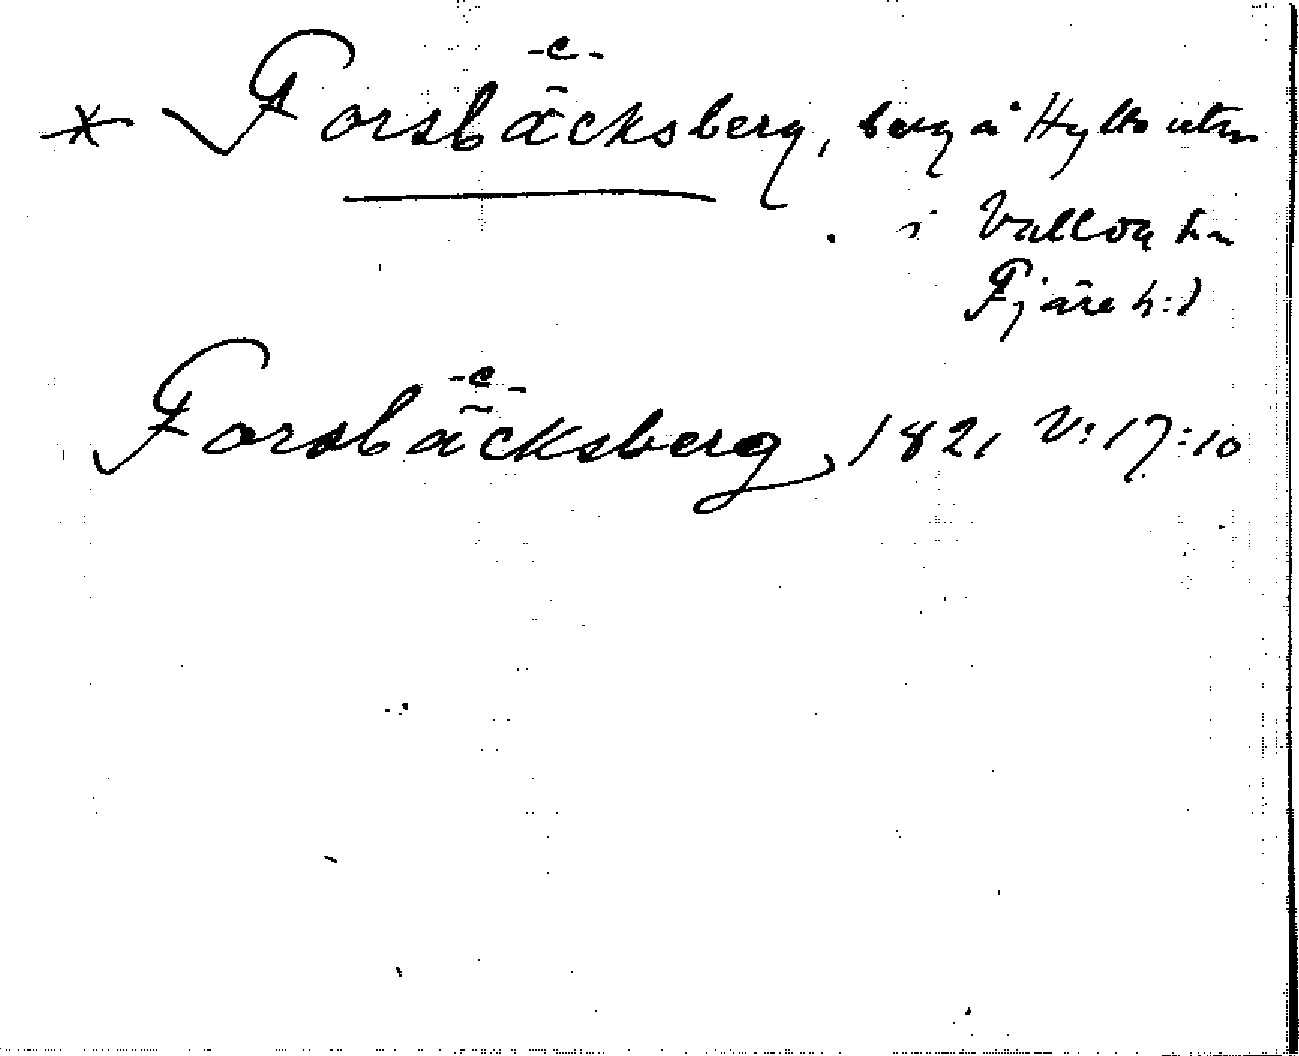 -e-
* Forsbäcksberg, berg å Hylte utm
i Valloa hn
Fjäre h:d
-e-
Forsbäcksberg 1821 V:17:10